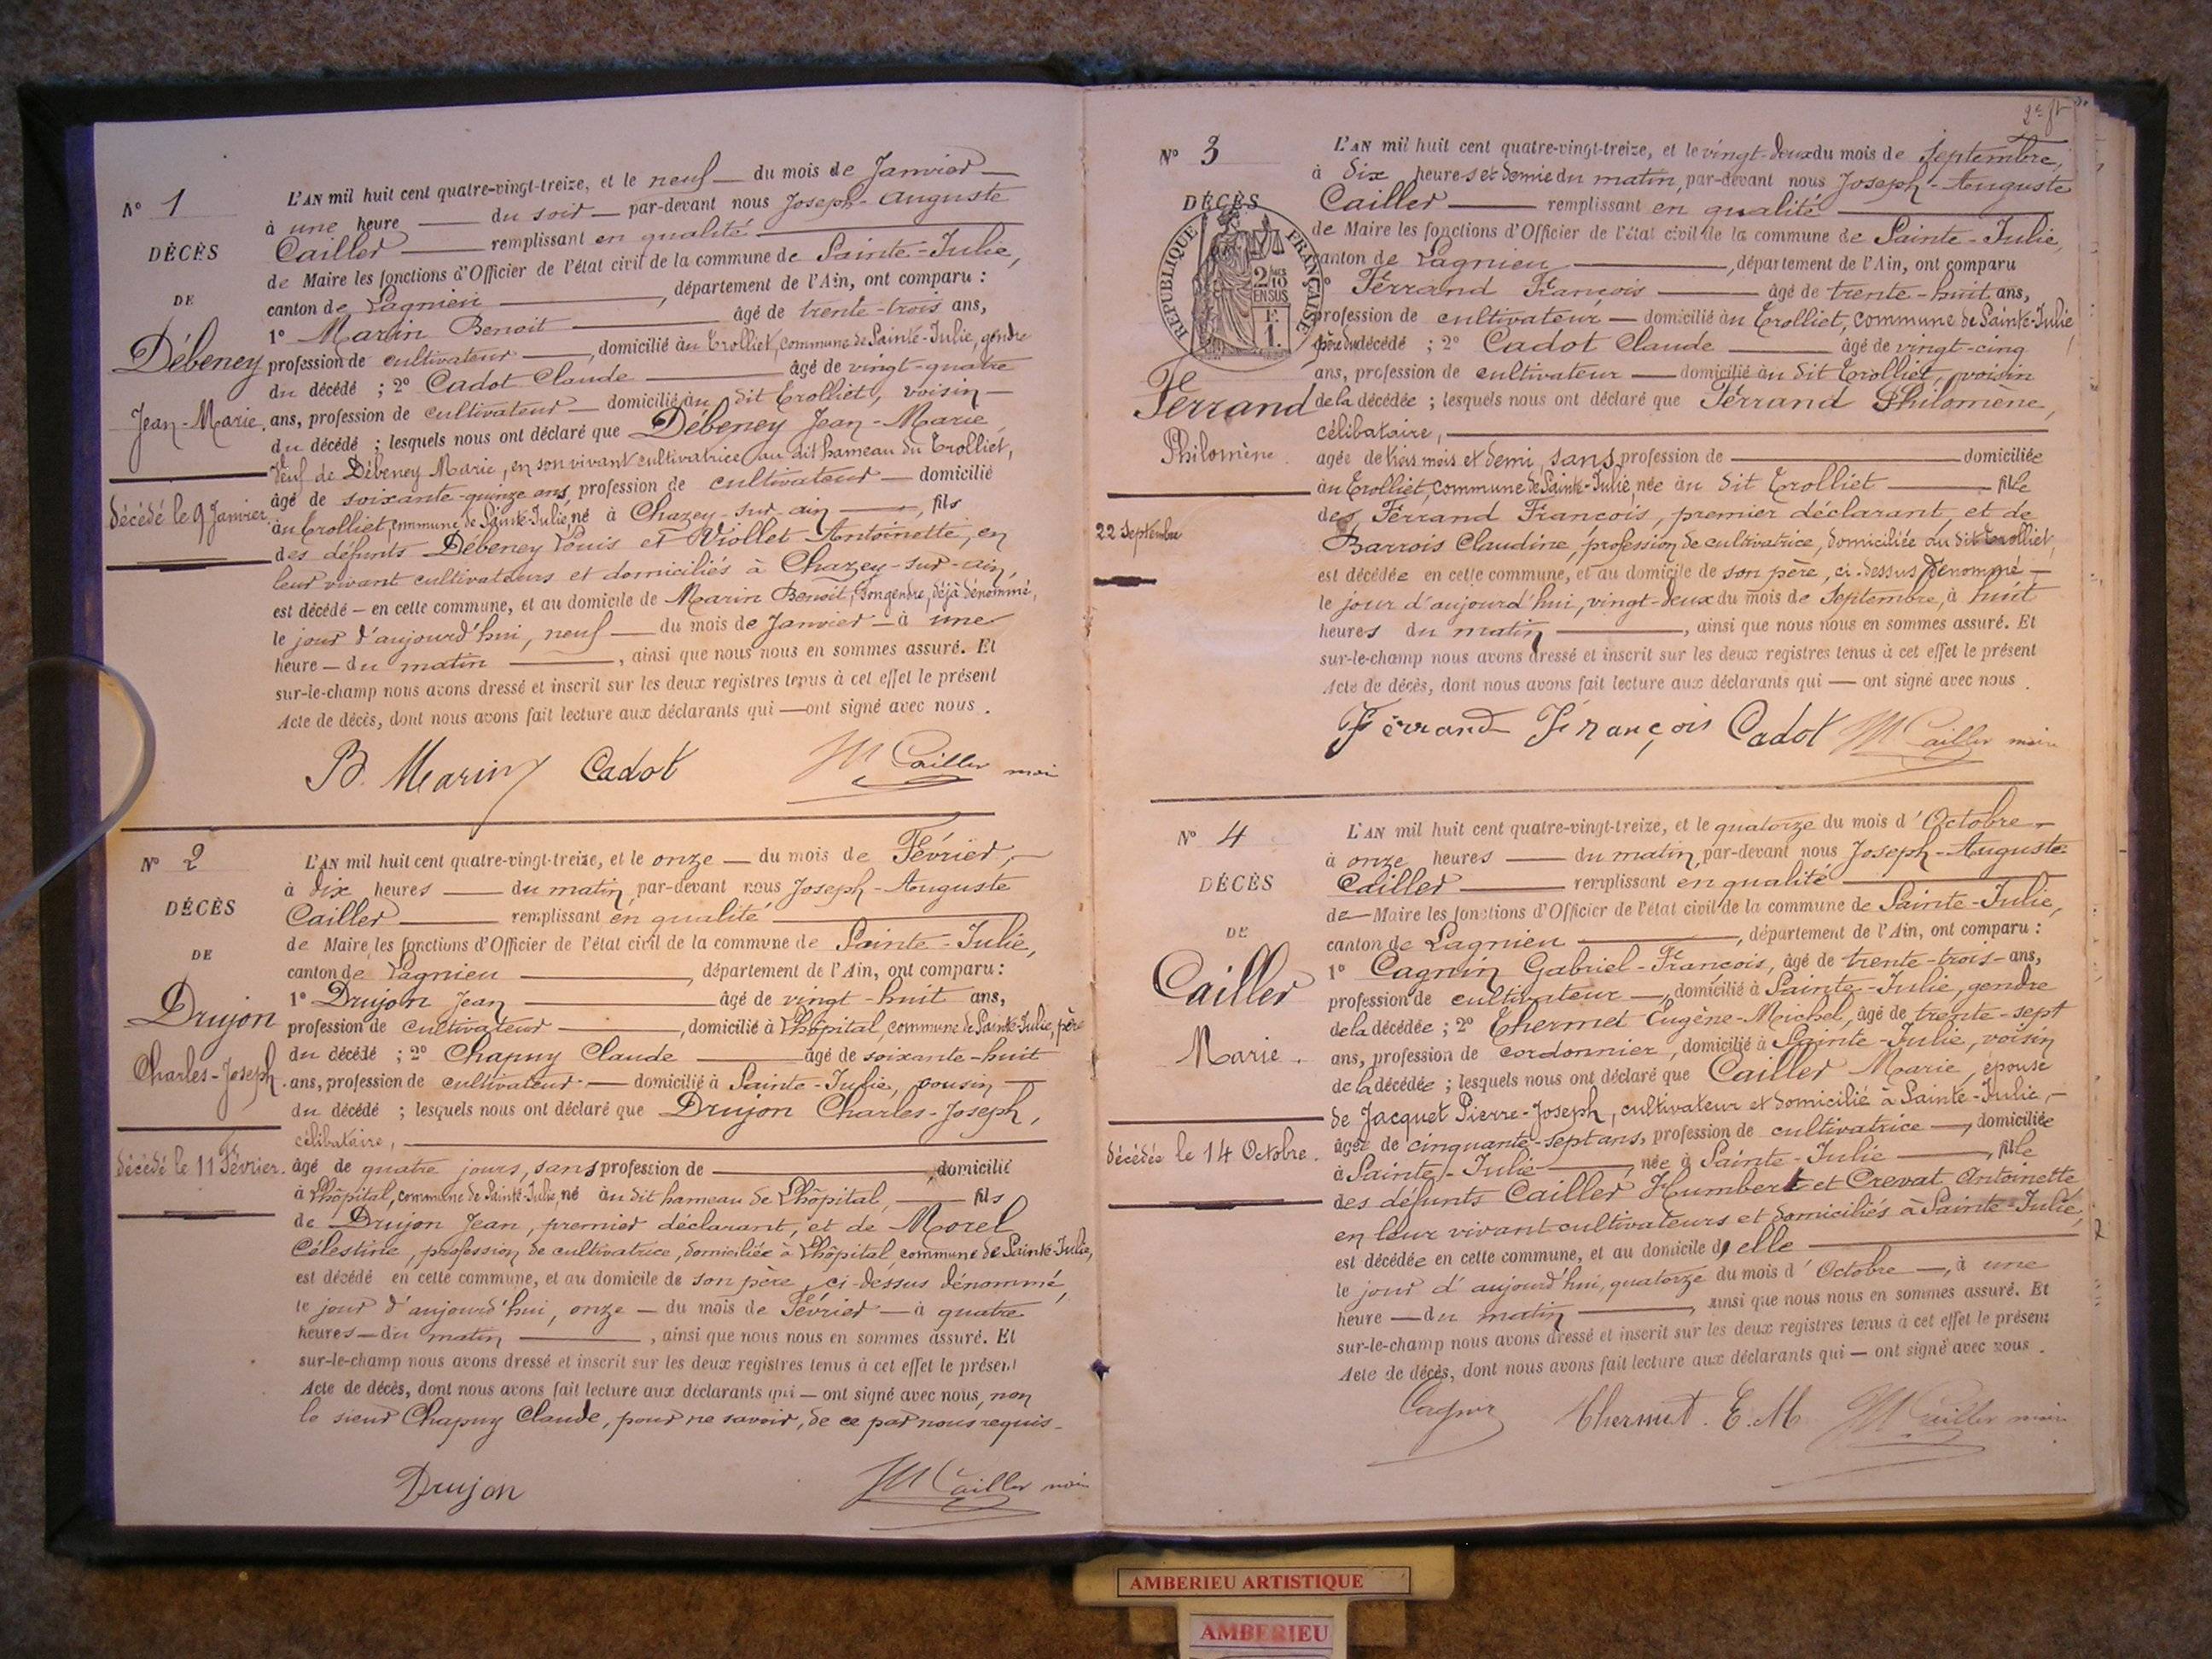 N° 1
DÉCÈS
DE
Débeney
Jean-Marie.
décédé le 9 Janvier.
L'AN mil huit cent quatre-vingt-treize, et le neuf — du mois de Janvier —
à une heure — du soir — par-devant nous Joseph-Auguste
Cailler — remplissant en qualité —
de Maire les fonctions d'Officier de l'état civil de la commune de Sainte-Julie,
canton de Lagnieu —, département de l'Ain, ont comparu :
1° Marin Benoit — âgé de trente-trois ans,
profession de cultivateur —, domicilié au Trolliet, commune de Sainte-Julie, gendre
du décédé ; 2° Cadot Claude — âgé de vingt-quatre
ans, profession de cultivateur — domicilié au dit Trolliet, voisin —
du décédé ; lesquels nous ont déclaré que Débeney Jean-Marie
veuf de Débeney Marie, en son vivant cultivatrice au dit hameau du Trolliet,
âgé de soixante-quinze ans, profession de cultivateur — domicilié
au Trolliet, commune de Sainte-Julie, né à Chazey-sur-ain —, fils
des défunts Débeney Louis et Viollet Antoinette, en
leur vivant cultivateurs et domiciliés à Chazey-sur-ain,
est décédé — en cette commune, et au domicile de Marin Benoit, son gendre, déjà dénommé,
le jour d'aujourd'hui, neuf — du mois de Janvier — à une
heure — du matin —, ainsi que nous nous en sommes assuré. Et
sur-le-champ nous avons dressé et inscrit sur les deux registres tenus à cet effet le présent
Acte de décès, dont nous avons fait lecture aux déclarants qui — ont signé avec nous.
B. Marin Cadot Cailler
N° 2
DÉCÈS
DE
Drujon
Charles-Joseph.
décédé le 11 Février.
L'AN mil huit cent quatre-vingt-treize, et le onze — du mois de Février, —
à dix heures — du matin, par-devant nous Joseph-Auguste
Cailler — remplissant en qualité —
de Maire les fonctions d'Officier de l'état civil de la commune de Sainte-Julie,
canton de Lagnieu —, département de l'Ain, ont comparu :
1° Drujon Jean — âgé de vingt-huit ans,
profession de cultivateur —, domicilié à Lhôpital, commune de Sainte-Julie, père
du décédé ; 2° Chapuy Claude — âgé de soixante-huit
ans, profession de cultivateur — domicilié à Sainte-Julie, cousin —
du décédé ; lesquels nous ont déclaré que Drujon Charles-Joseph,
célibataire, —
âgé de quatre jours, sans profession de — domicilié
à Lhôpital, commune de Sainte-Julie, né au dit hameau de Lhôpital, — fils
de Drujon Jean, premier déclarant, et de Morel
Célestine, profession de cultivatrice, domiciliée à Lhôpital, commune de Sainte-Julie,
est décédé en cette commune, et au domicile de son père, ci-dessus dénommé,
le jour d'aujourd'hui, onze — du mois de Février — à quatre
heures — du matin —, ainsi que nous nous en sommes assuré. Et
sur-le-champ nous avons dressé et inscrit sur les deux registres tenus à cet effet le présent
Acte de décès, dont nous avons fait lecture aux déclarants qui — ont signé avec nous, non
le sieur Chapuy Claude, pour ne savoir, de ce par nous requis —
Drujon Cailler
N° 3
DÉCÈS
RÉPUBLIQUE FRANÇAISE
2/10
EN SUS
Ferrand
Philomène.
22 Septembre
L'AN mil huit cent quatre-vingt-treize, et le vingt-deux du mois de Septembre,
à dix heures et demie du matin, par-devant nous Joseph-Auguste
Cailler — remplissant en qualité —
de Maire les fonctions d'Officier de l'état civil de la commune de Sainte-Julie,
canton de Lagnieu —, département de l'Ain, ont comparu
Ferrand François — âgé de trente-huit ans,
profession de cultivateur — domicilié au Trolliet, commune de Sainte-Julie,
père du décédé ; 2° Cadot Claude — âgé de vingt-cinq
ans, profession de cultivateur — domicilié au dit Trolliet, voisin
de la décédée ; lesquels nous ont déclaré que Ferrand Philomène,
célibataire, —
agée de trois mois et demi, sans profession de — domiciliée
au Trolliet, commune de Sainte-Julie, née au dit Trolliet — fille
des Ferrand François, premier déclarant, et de
Barrois Claudine, profession de cultivatrice, domiciliée au dit Trolliet,
est décédée en cette commune, et au domicile de son père, ci-dessus dénommé —
le jour d'aujourd'hui, vingt-deux du mois de Septembre, à huit
heures du matin —, ainsi que nous nous en sommes assuré. Et
sur-le-champ nous avons dressé et inscrit sur les deux registres tenus à cet effet le présent
Acte de décès, dont nous avons fait lecture aux déclarants qui — ont signé avec nous.
Ferrand François Cadot Cailler maire
N° 4
DÉCÈS
DE
Cailler
Marie.
décédée le 14 Octobre.
L'AN mil huit cent quatre-vingt-treize, et le quatorze du mois d'Octobre —
à onze heures — du matin, par-devant nous Joseph-Auguste
Cailler — remplissant en qualité —
de — Maire les fonctions d'Officier de l'état civil de la commune de Sainte-Julie,
canton de Lagnieu —, département de l'Ain, ont comparu :
1° Cagnin Gabriel-François, âgé de trente-trois — ans,
profession de cultivateur —, domicilié à Sainte-Julie, gendre
de la décédée ; 2° Thermet Eugène-Michel, âgé de trente-sept
ans, profession de cordonnier, domicilié à Sainte-Julie, voisin
de la décédée ; lesquels nous ont déclaré que Cailler Marie, épouse
de Jacquet Pierre-Joseph, cultivateur et domicilié à Sainte-Julie, —
âgée de cinquante-sept ans, profession de cultivatrice —, domiciliée
à Sainte-Julie —, née à Sainte-Julie —, fille
des défunts Cailler Humbert et Crevat Antoinette
en leur vivant cultivateurs et domiciliés à Sainte-Julie,
est décédée en cette commune, et au domicile d'elle —
le jour d'aujourd'hui, quatorze du mois d'Octobre —, à une
heure — du matin —, ainsi que nous nous en sommes assuré. Et
sur-le-champ nous avons dressé et inscrit sur les deux registres tenus à cet effet le présent
Acte de décès, dont nous avons fait lecture aux déclarants qui — ont signé avec nous.
Cagnin Thermet. E. M. Cailler maire
AMBERIEU ARTISTIQUE
AMBERIEU